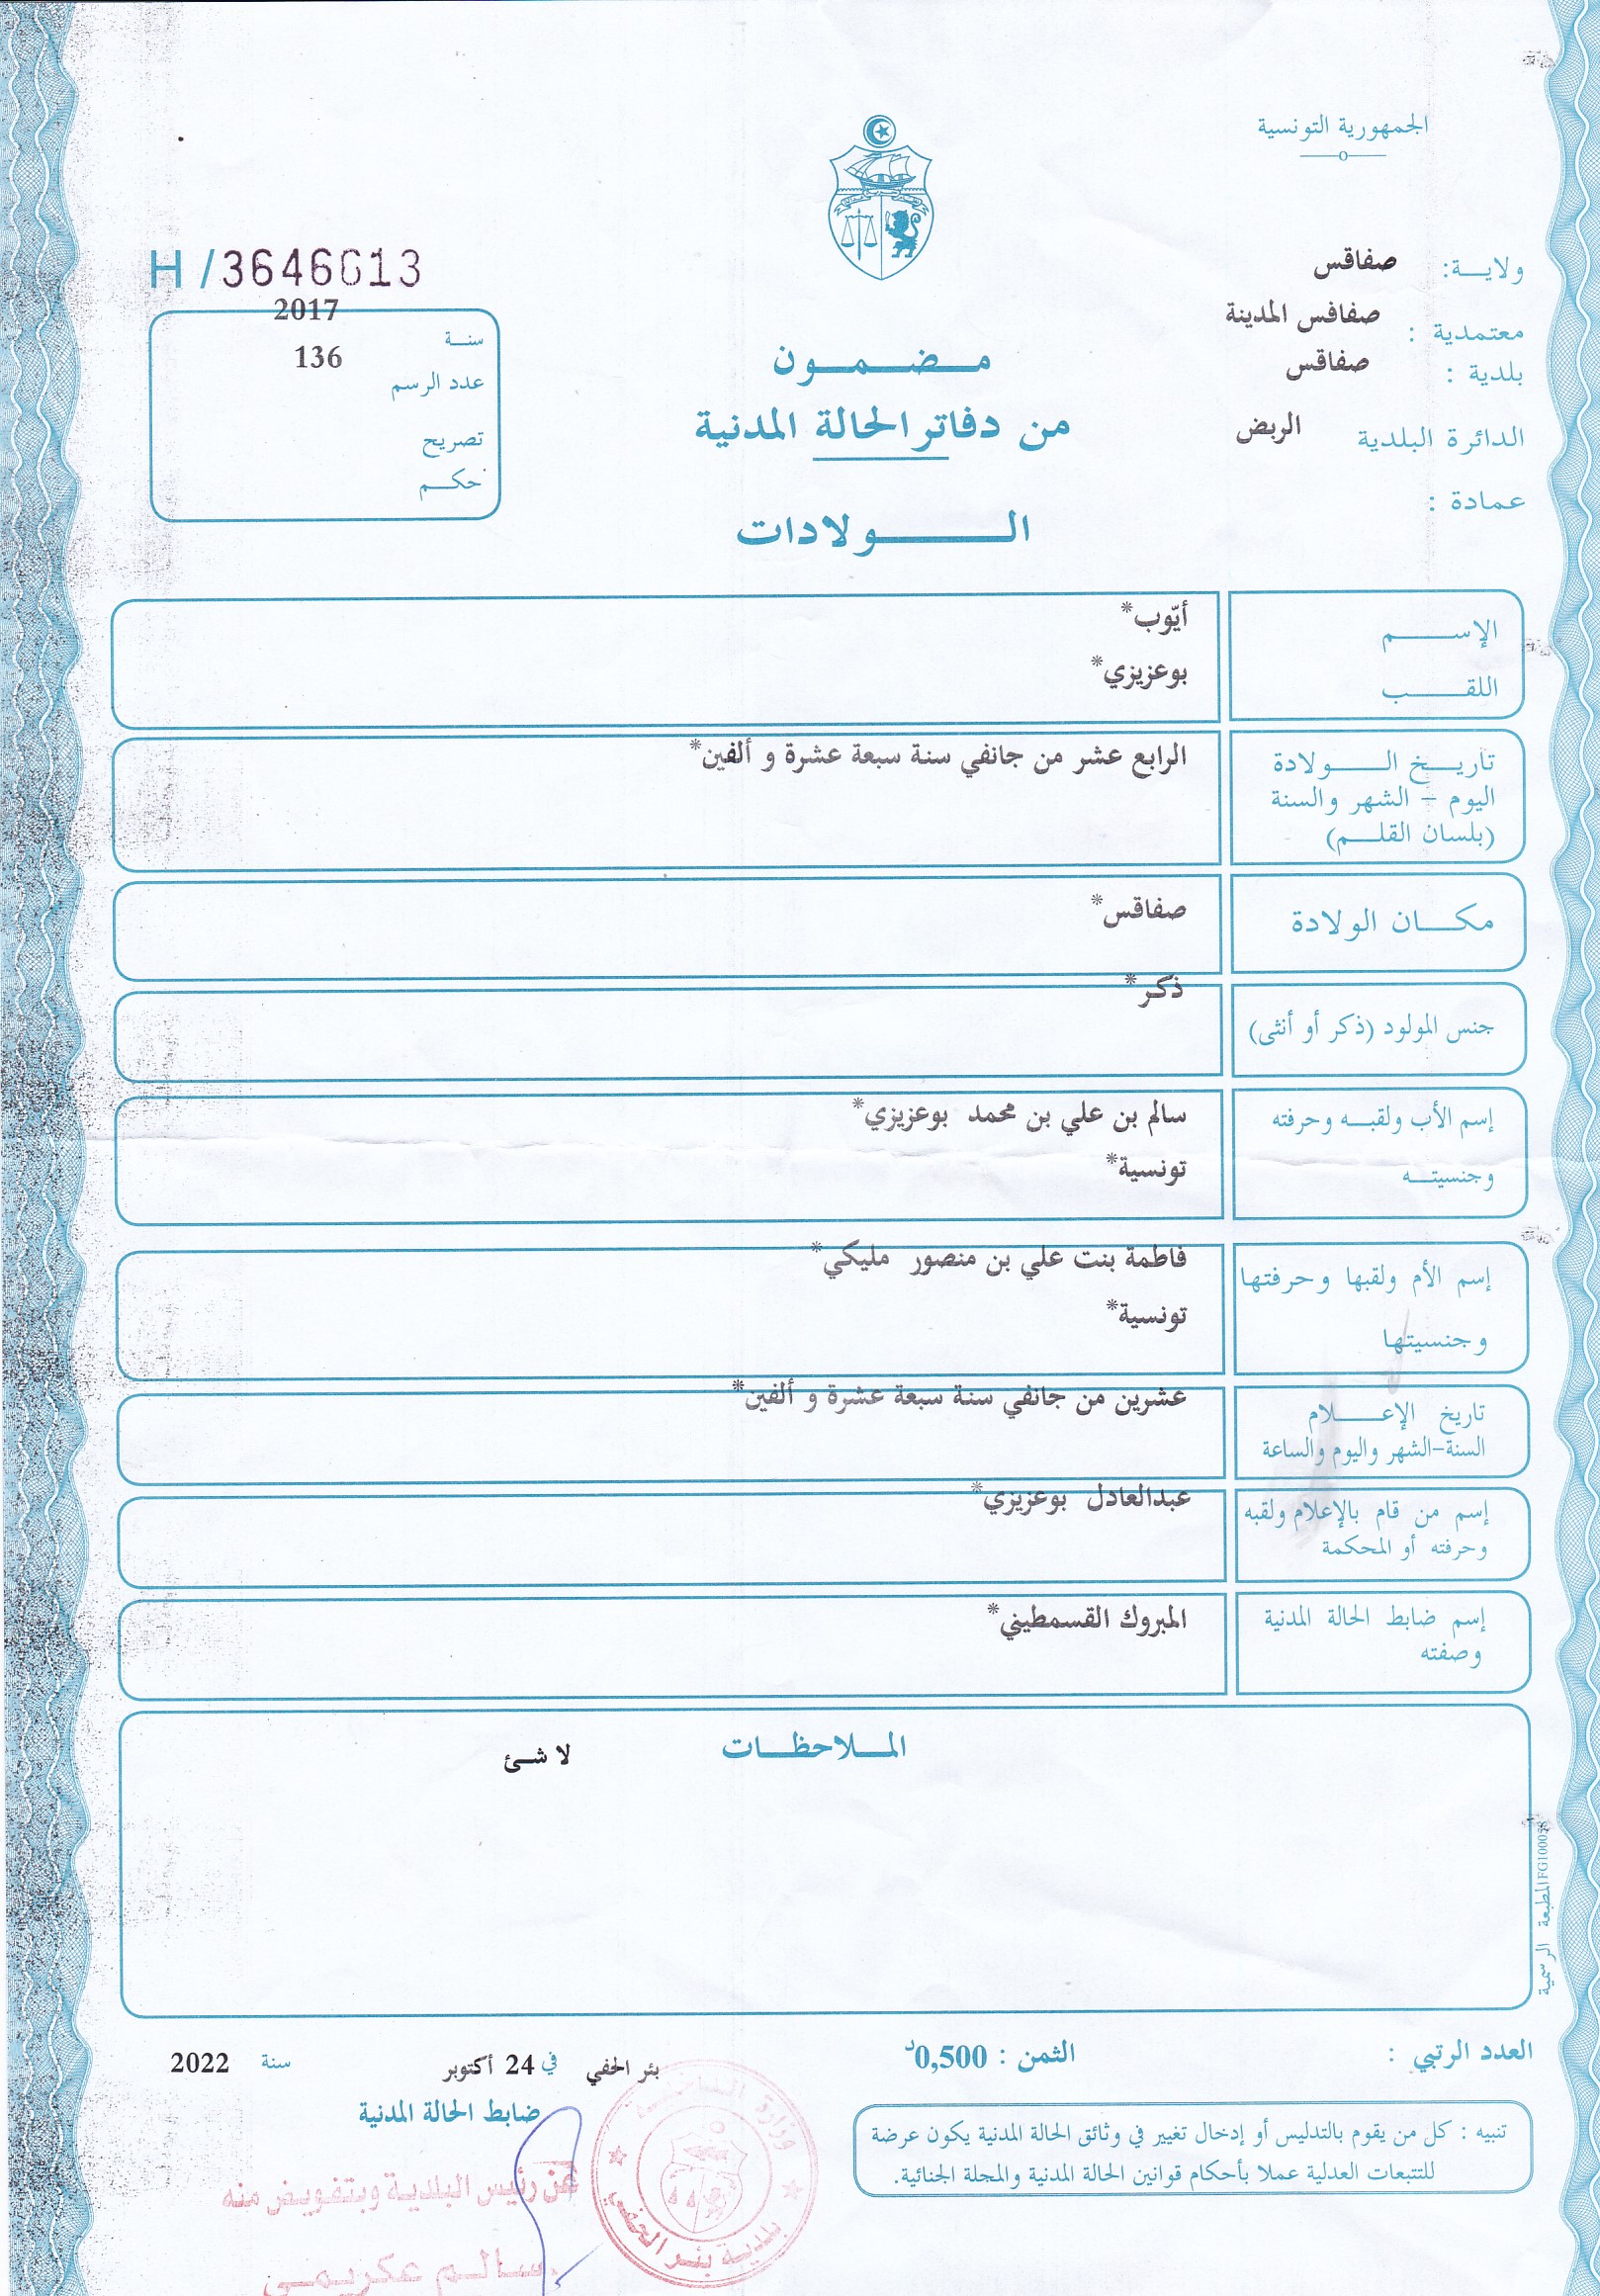 الجمهورية التونسية
ولايـــة: صفاقس
معتمدية : صفافس المدينة
بلدية : صفاقس
الدائرة البلدية الربض
عمادة :
H/3646613
2017
سنــة
136
عدد الرسم
تصريح
حكـــم
مــضــمــون
من دفاتر الحالة المدنية
الـــولادات
الإســــم أيّوب*
اللقــــب بوعزيزي*
تاريــخ الـــولادة الرابع عشر من جانفي سنة سبعة عشرة و ألفين*
اليوم – الشهر والسنة
(بلسان القلــم)
مكــان الولادة صفاقس*
جنس المولود (ذكر أو أنثى) ذكر*
إسم الأب ولقبــه وحرفته سالم بن علي بن محمد بوعزيزي*
وجنسيتــه تونسية*
إسم الأم ولقبها وحرفتها فاطمة بنت علي بن منصور مليكي*
وجنسيتها تونسية*
تاريخ الإعـــلام عشرين من جانفي سنة سبعة عشرة و ألفين*
السنة-الشهر واليوم والساعة
إسم من قام بالإعلام ولقبه عبدالعادل بوعزيزي*
وحرفته أو المحكمة
إسم ضابط الحالة المدنية المبروك القسمطيني*
وصفته
المــلاحظــات
لا شئ
المطبعة الرسمية
العدد الرتبي :
الثمن : 0,500د
بئر الحفي في 24 أكتوبر سنة 2022
ضابط الحالة المدنية
تنبيه : كل من يقوم بالتدليس أو إدخال تغيير في وثائق الحالة المدنية يكون عرضة
للتتبعات العدلية عملا بأحكام قوانين الحالة المدنية والمجلة الجنائية.
عن رئيس البلدية وبتفويض منه
سالم عكريمي
بلدية بئر الحفي